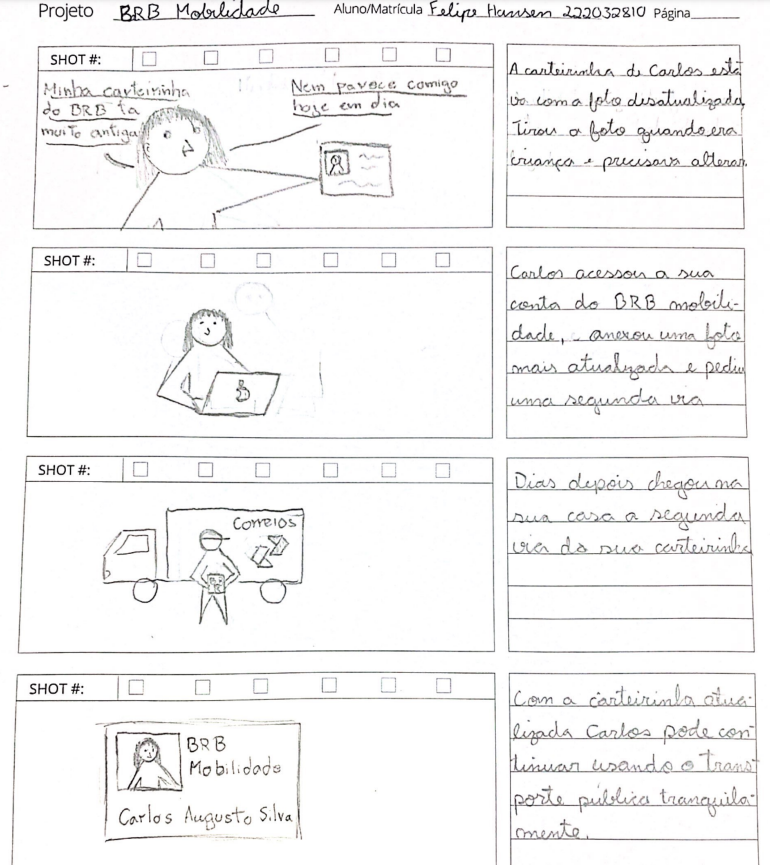 Projeto BRB Mobilidade Aluno/Matrícula Felipe Hansen 222032810 Página
SHOT #:
Minha carteirinha
do BRB ta
muito antiga
Nem parece comigo
hoje em dia
A carteirinha de Carlos está
com a foto desatualizada
Tirou a foto quando era
criança e precisava alterar.
SHOT #:
Carlos acessou a sua
conta do BRB mobili-
dade, anexou uma foto
mais atualizada e pediu
uma segunda via
SHOT #:
Correios
Dias depois chegou na
sua casa a segunda
via da sua carteirinha
SHOT #:
BRB
Mobilidade
Carlos Augusto Silva
Com a carteirinha atua-
lizada Carlos pode con-
tinuar usando o trans-
porte público tranquila-
mente.